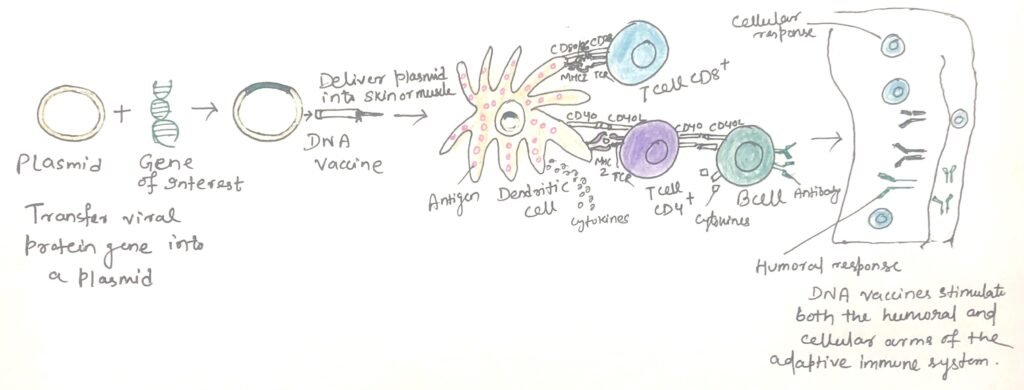 Plasmid
+
Gene
of Interest
Transfer viral
protein gene into
a plasmid
Deliver plasmid
into skin or muscle
DNA
vaccine
Antigen
Dendritic
cell
Cytokines
CD28
MHC1
TCR
T cell CD8+
CD40
CD40L
MHC
2
TCR
T cell
CD4+
CD40
CD40L
Cytokines
B cell
Antibody
Cellular
response
Humoral response
DNA vaccines stimulate
both the humoral and
cellular arms of the
adaptive immune system.